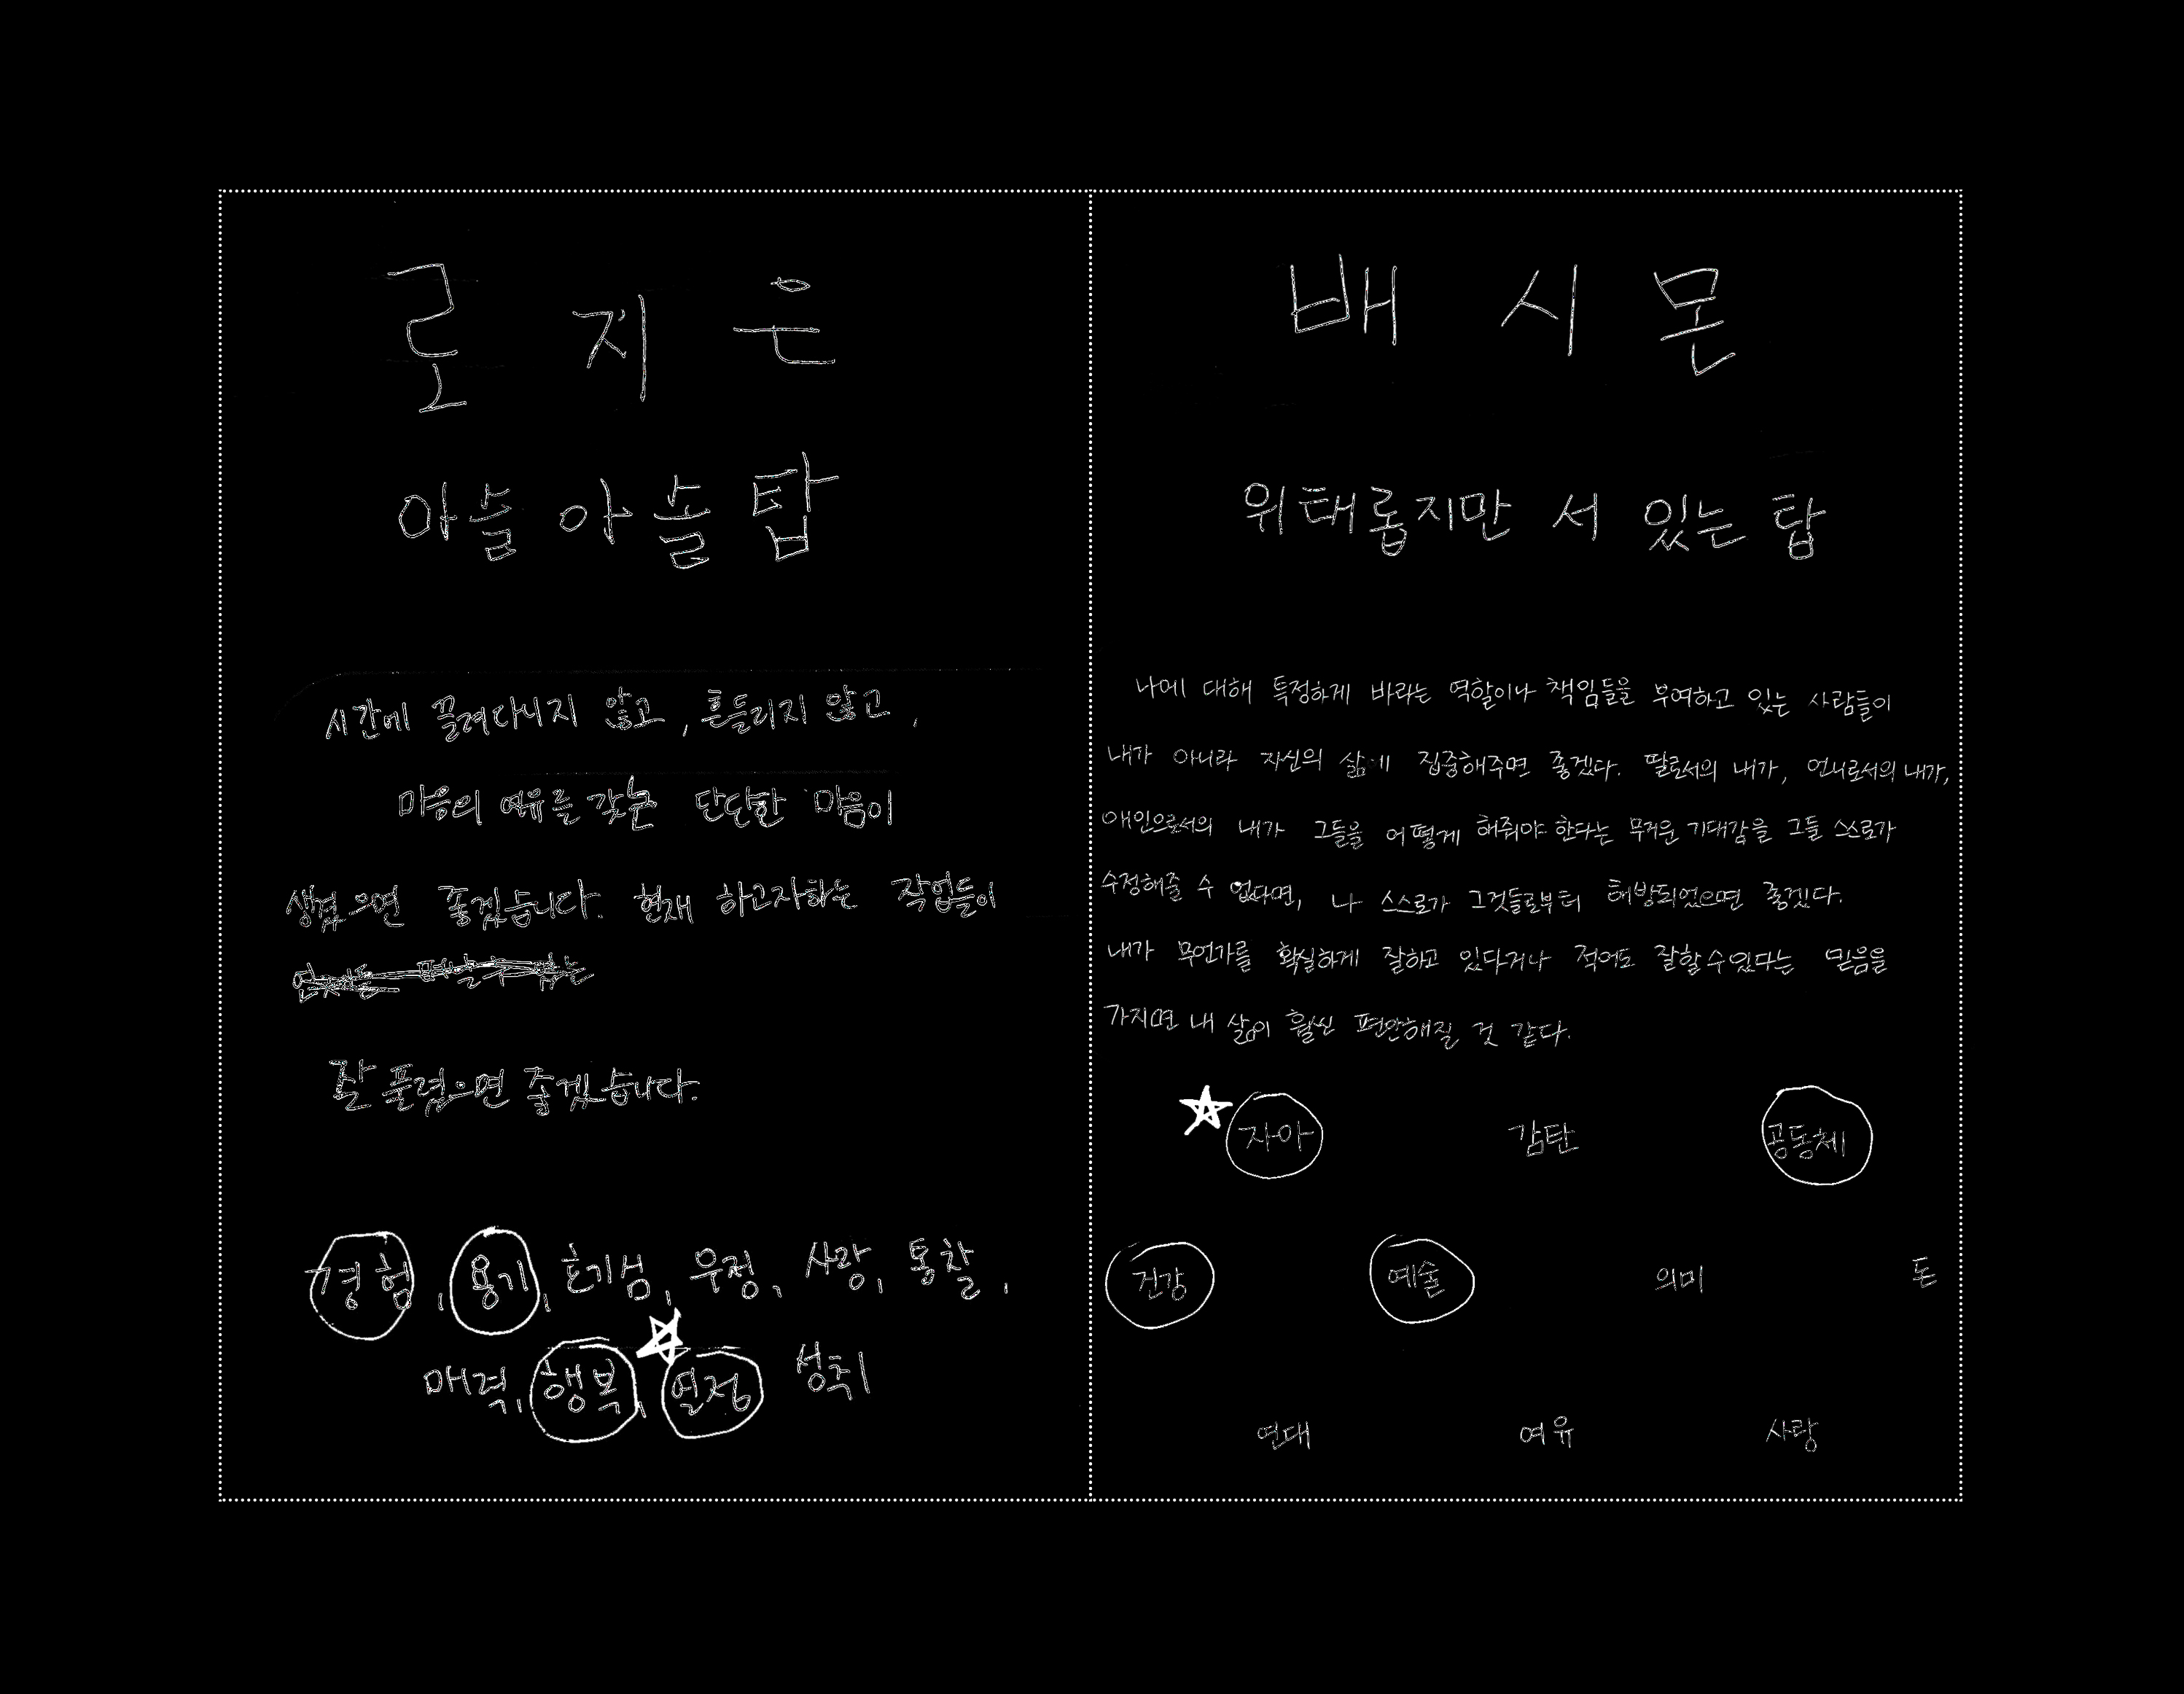 로 지 은
아슬 아슬 탑
시간에 끌려다니지 않고, 흔들리지 않고,
마음의 여유를 갖는 단단한 마음이
생겼으면 좋겠습니다. 현재 하고자하는 작업들이
잘 풀렸으면 좋겠습니다.
경험, 용기, 호기심, 우정, 사랑, 통찰,
매력, 행복, 열정 성취
배 시 몬
위태롭지만 서 있는 탑
나에 대해 특정하게 바라는 역할이나 책임들을 부여하고 있는 사람들이
내가 아니라 자신의 삶에 집중해주면 좋겠다. 딸로서의 내가, 언니로서의 내가,
애인으로서의 내가 그들을 어떻게 해줘야 한다는 무거운 기대감을 그들 스스로가
수정해줄 수 없다면, 나 스스로가 그것들로부터 해방되었으면 좋겠다.
내가 무언가를 확실하게 잘하고 있다거나 적어도 잘할 수 있다는 믿음을
가지면 내 삶이 훨씬 편안해질 것 같다.
자아 감탄 공동체
건강 예술 의미 돈
연대 여유 사랑